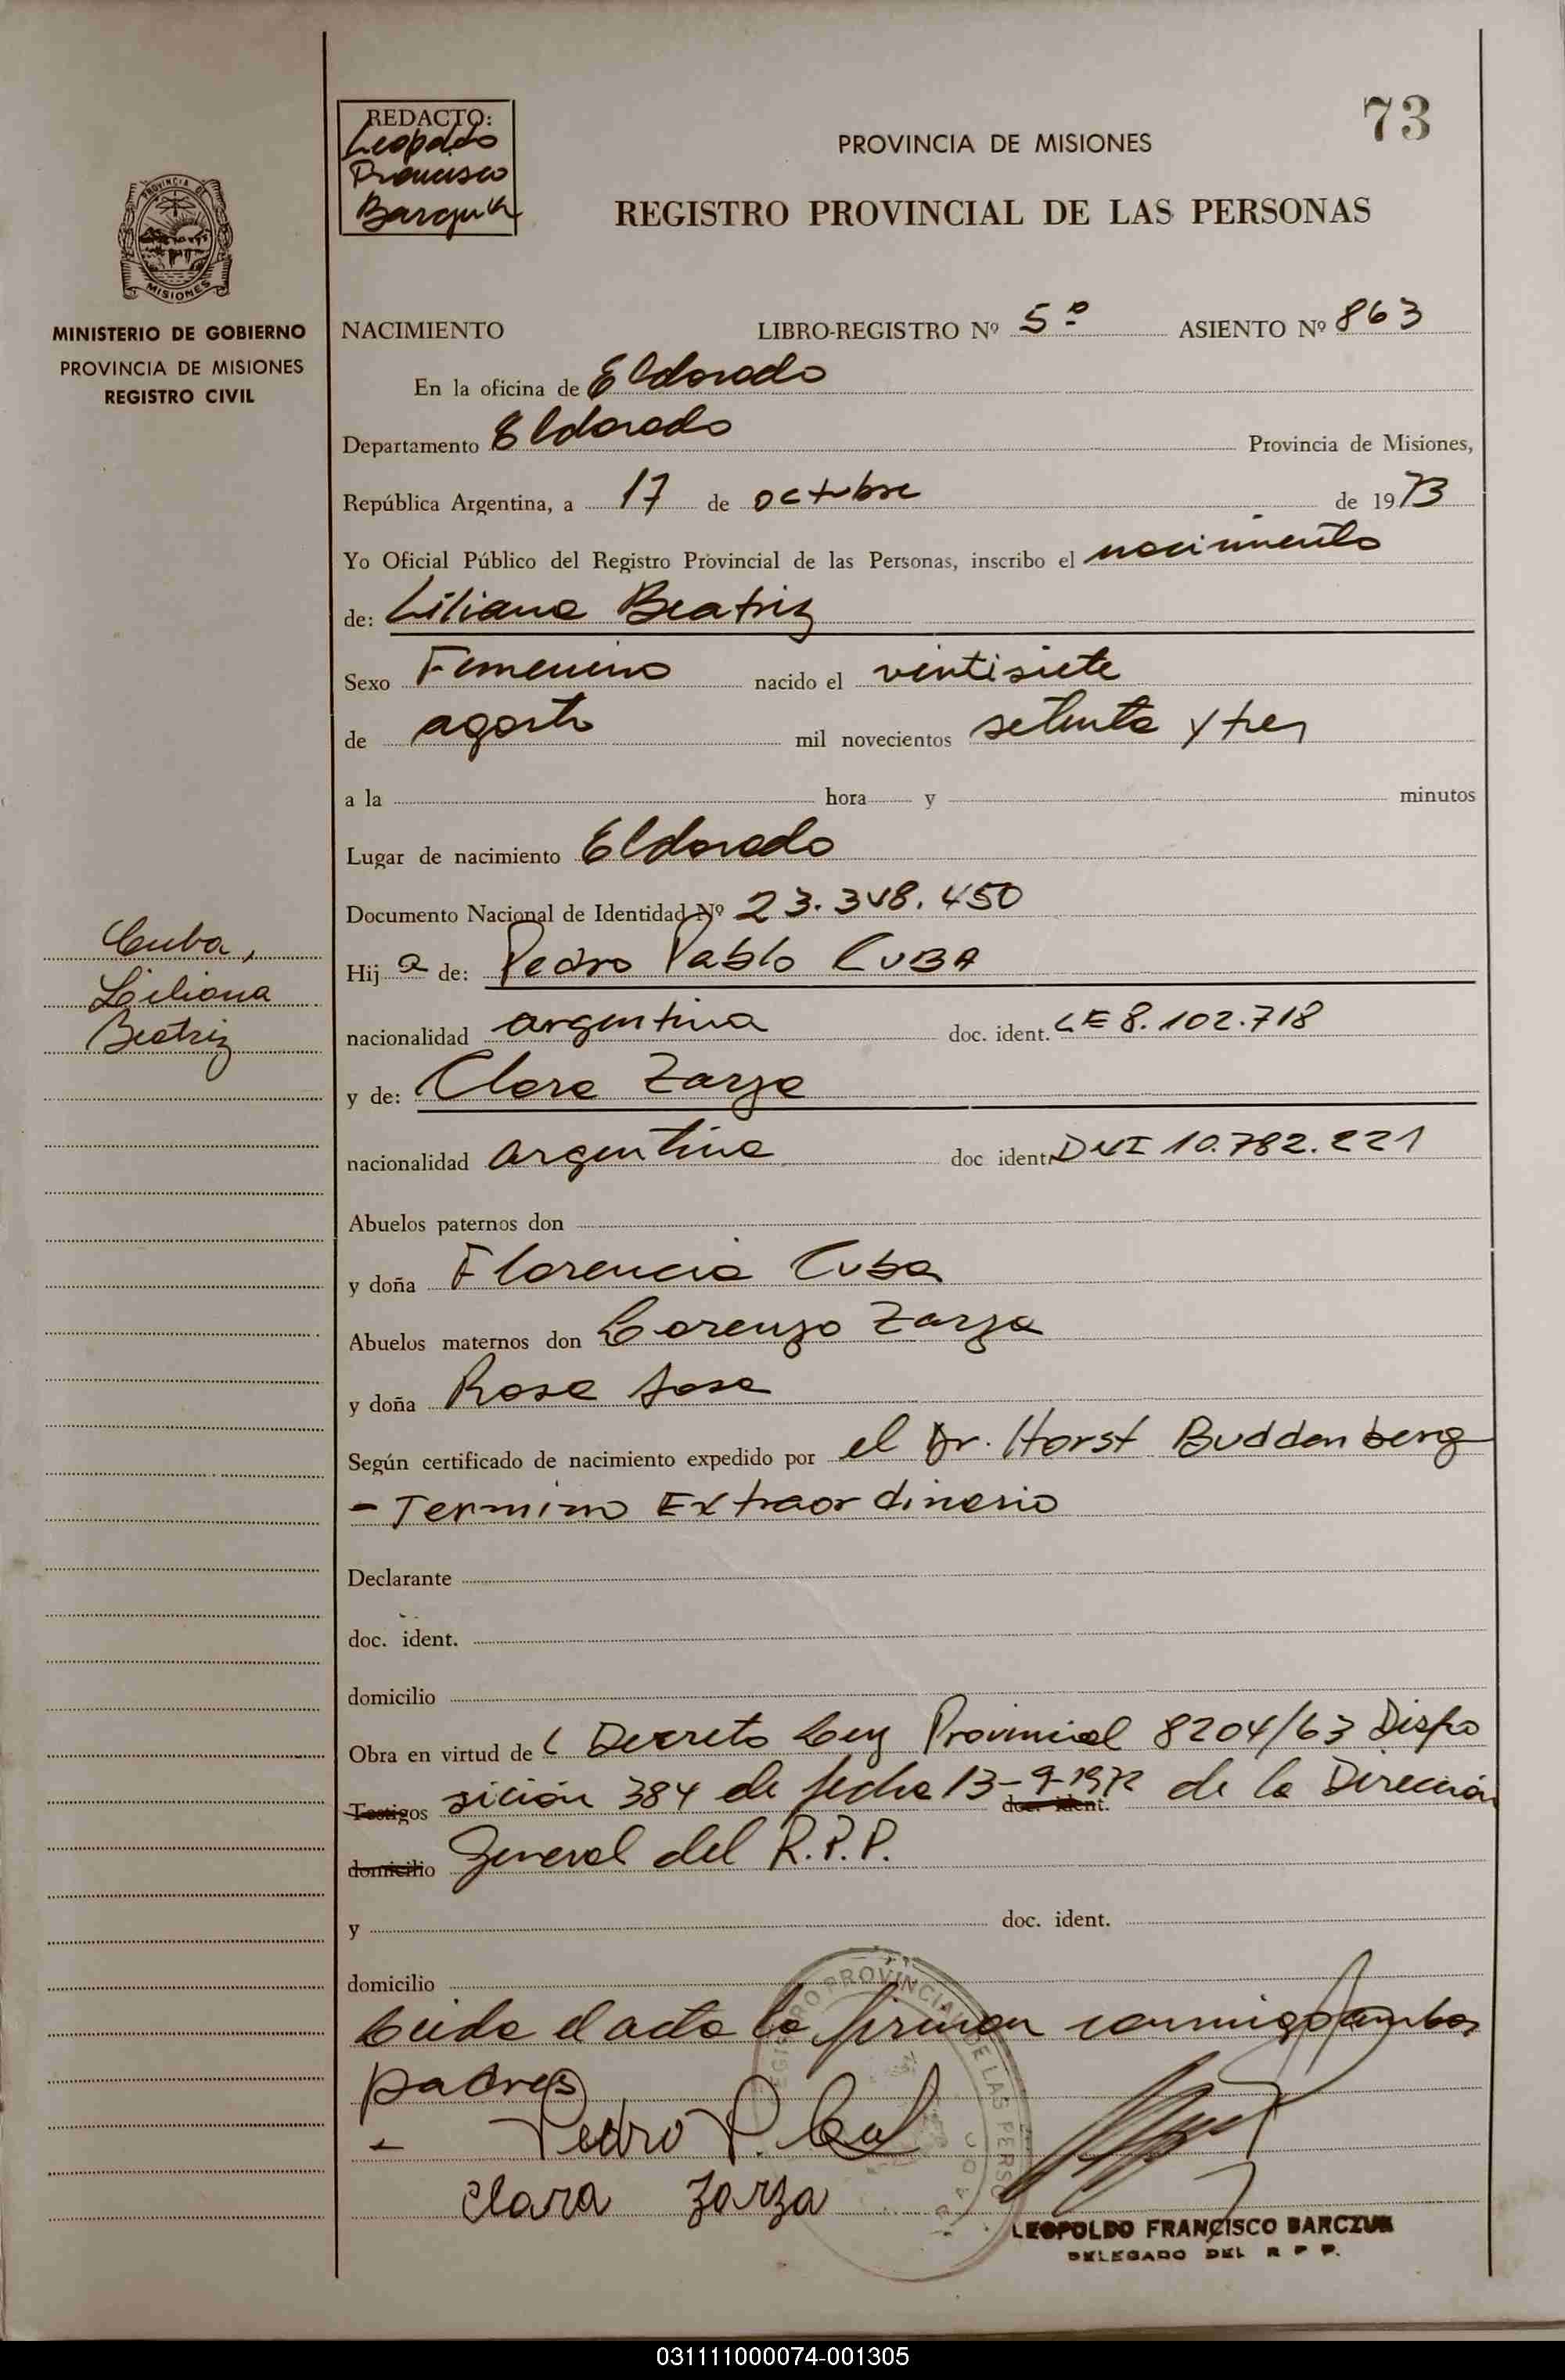 73
REDACTO:
Leopoldo
Francisco
PROVINCIA DE MISIONES
REGISTRO PROVINCIAL DE LAS PERSONAS
PROVINCIA DE
MISIONES
MINISTERIO DE GOBIERNO
PROVINCIA DE MISIONES
REGISTRO CIVIL
NACIMIENTO LIBRO-REGISTRO Nº 5º ASIENTO Nº 863
En la oficina de Eldorado
Departamento Eldorado Provincia de Misiones,
República Argentina, a 17 de octubre de 1973
Yo Oficial Público del Registro Provincial de las Personas, inscribo el nacimiento
de: Liliana Beatriz
Sexo Femenino nacido el ventisiete
de agosto mil novecientos setenta y tres
a la hora y minutos
Lugar de nacimiento Eldorado
Documento Nacional de Identidad Nº 23.348.450
Cuba,
Liliana
Beatriz
Hija de: Pedro Pablo CUBA
nacionalidad argentina doc. ident. LE 8.102.718
y de: Clara Zarza
nacionalidad argentina doc ident. DNI 10.782.221
Abuelos paternos don
y doña Florencia Cuba
Abuelos maternos don Lorenzo Zarza
y doña Rosa Sosa
Según certificado de nacimiento expedido por el Dr. Horst Buddenberg
- Termino Extraordinario
Declarante
doc. ident.
domicilio
Obra en virtud del Decreto Ley Provincial 8204/63 Dispo
Testigos sición 384 de fecha 13-9-1972 doc. ident. de la Dirección
domicilio General del R.P.P.
y doc. ident.
domicilio
Leida el acta la firman conmigo ambos
padres
- Pedro P. Cuba
Clara Zarza
REGISTRO PROVINCIAL DE LAS PERSO
LEOPOLDO FRANCISCO BARCZUK
DELEGADO DEL R P P.
031111000074-001305